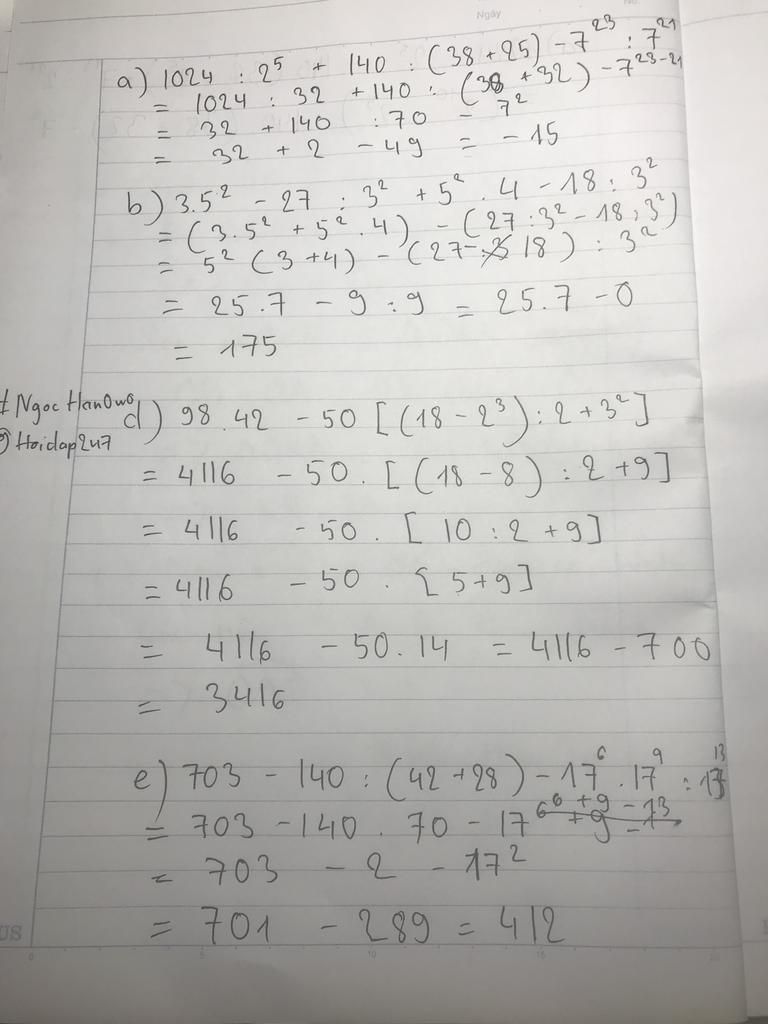 Ngày
a) 1024 : 2⁵ + 140 : (38 + 25) - 7²³ : 7²¹
= 1024 : 32 + 140 : (38 + 32) - 7²³⁻²¹
= 32 + 140 : 70 - 7²
= 32 + 2 - 49 = -15
b) 3.5² - 27 : 3² + 5² . 4 - 18 : 3²
= (3.5² + 5² . 4) - (27 : 3² - 18 : 3²)
= 5² (3 + 4) - (27 - 18) : 3²
= 25.7 - 9 : 9 = 25.7 - 0
= 175
# Ngoc HanOwo
@ Hoidap247
d) 98 . 42 - 50 [(18 - 2³) : 2 + 3²]
= 4116 - 50 . [(18 - 8) : 2 + 9]
= 4116 - 50 . [10 : 2 + 9]
= 4116 - 50 . [5 + 9]
= 4116 - 50 . 14 = 4116 - 700
= 3416
e) 703 - 140 : (42 + 28) - 17⁶ . 17⁹ : 17¹³
= 703 - 140 . 70 - 17⁶⁺⁹⁻¹³
= 703 - 2 - 17²
= 701 - 289 = 412
0 5 10 15 20